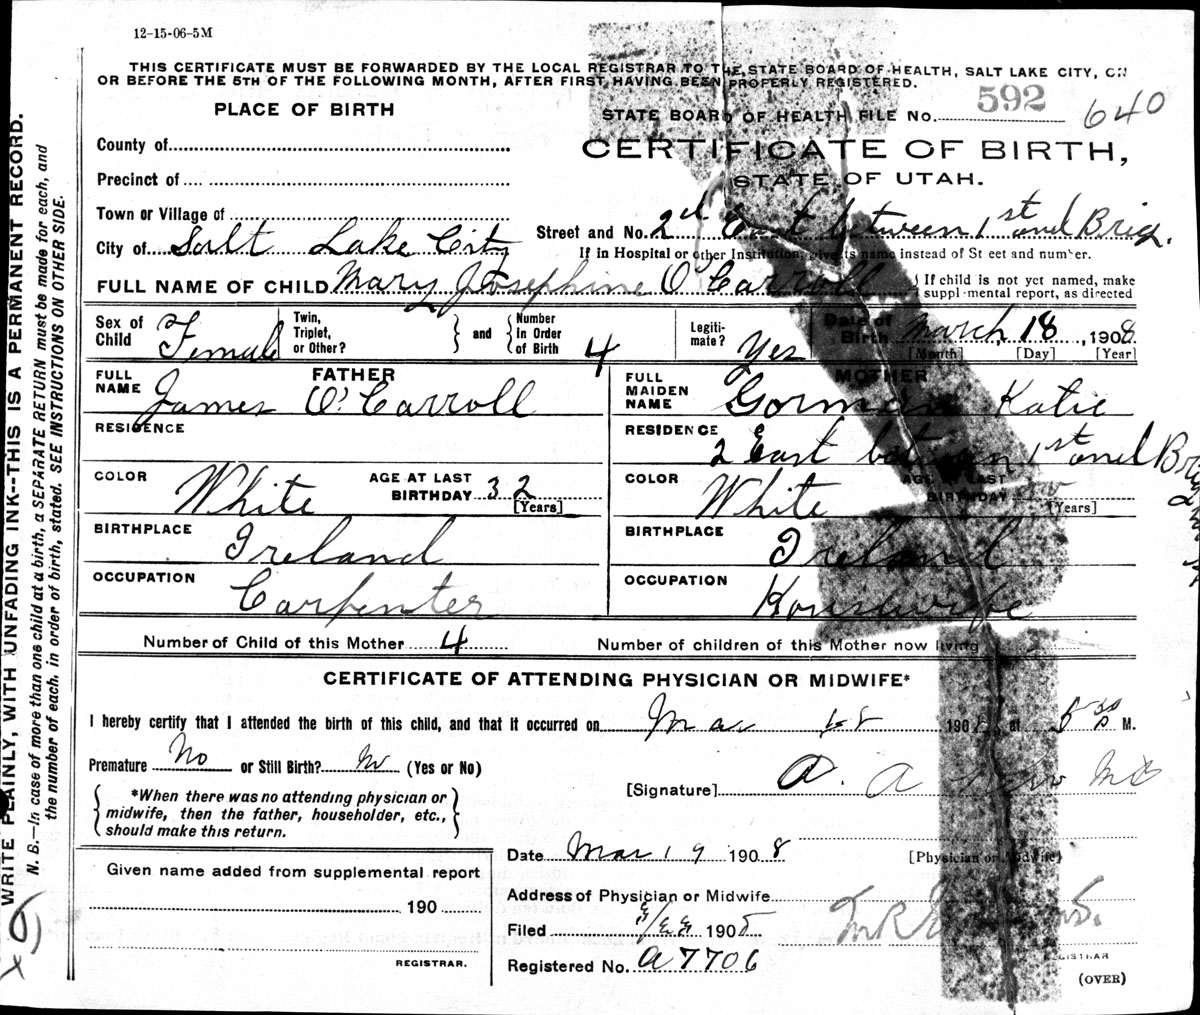 12-15-06-5M
THIS CERTIFICATE MUST BE FORWARDED BY THE LOCAL REGISTRAR TO THE STATE BOARD OF HEALTH, SALT LAKE CITY, ON
OR BEFORE THE 5TH OF THE FOLLOWING MONTH, AFTER FIRST HAVING BEEN PROPERLY REGISTERED.
PLACE OF BIRTH
592
STATE BOARD OF HEALTH FILE No. 640
County of
CERTIFICATE OF BIRTH,
Precinct of
STATE OF UTAH.
Town or Village of
City of Salt Lake City
Street and No. 2d East between 1st and Brig.
If in Hospital or other Institution, give its name instead of Street and number.
FULL NAME OF CHILD Mary Josephine O'Carroll
If child is not yet named, make
supplemental report, as directed
Sex of Child Female
Twin, Triplet, or Other?
and
Number in Order of Birth 4
Legitimate? Yes
Date of Birth March, 18, 1908
[Month] [Day] [Year]
FATHER
FULL NAME James O'Carroll
RESIDENCE
COLOR White
AGE AT LAST BIRTHDAY 32
[Years]
BIRTHPLACE Ireland
OCCUPATION Carpenter
MOTHER
FULL MAIDEN NAME Gorman Katie
RESIDENCE 2 East between 1st and Brig
COLOR White
AGE AT LAST BIRTHDAY
[Years]
BIRTHPLACE Ireland
OCCUPATION Housewife
Number of Child of this Mother 4
Number of children of this Mother now living
CERTIFICATE OF ATTENDING PHYSICIAN OR MIDWIFE*
I hereby certify that I attended the birth of this child, and that it occurred on Mar 18 190 at 5 P M.
Premature No or Still Birth? No (Yes or No)
[Signature] A. A
*When there was no attending physician or
midwife, then the father, householder, etc.,
should make this return.
Date Mar 19 1908
[Physician or Midwife]
Given name added from supplemental report
190
REGISTRAR.
Address of Physician or Midwife
Filed 1908
REGISTRAR
Registered No. A7706
(OVER)
WRITE PLAINLY, WITH UNFADING INK--THIS IS A PERMANENT RECORD.
N. B.—In case of more than one child at a birth, a SEPARATE RETURN must be made for each, and
the number of each, in order of birth, stated. SEE INSTRUCTIONS ON OTHER SIDE.